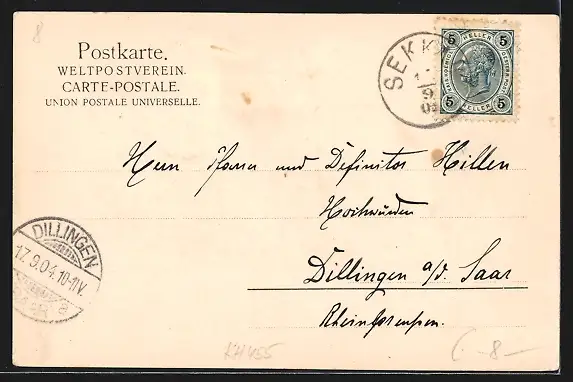 8
Postkarte.
WELTPOSTVEREIN.
CARTE-POSTALE.
UNION POSTALE UNIVERSELLE.
SEKK
9
5 HELLER 5
5 HELLER 5
Herrn Pfarrer und Definitor Hillen
Hochwürden
Dillingen a/d. Saar
Rheinpreussen.
DILLINGEN
17.9.04.10-11V.
a
(-8-